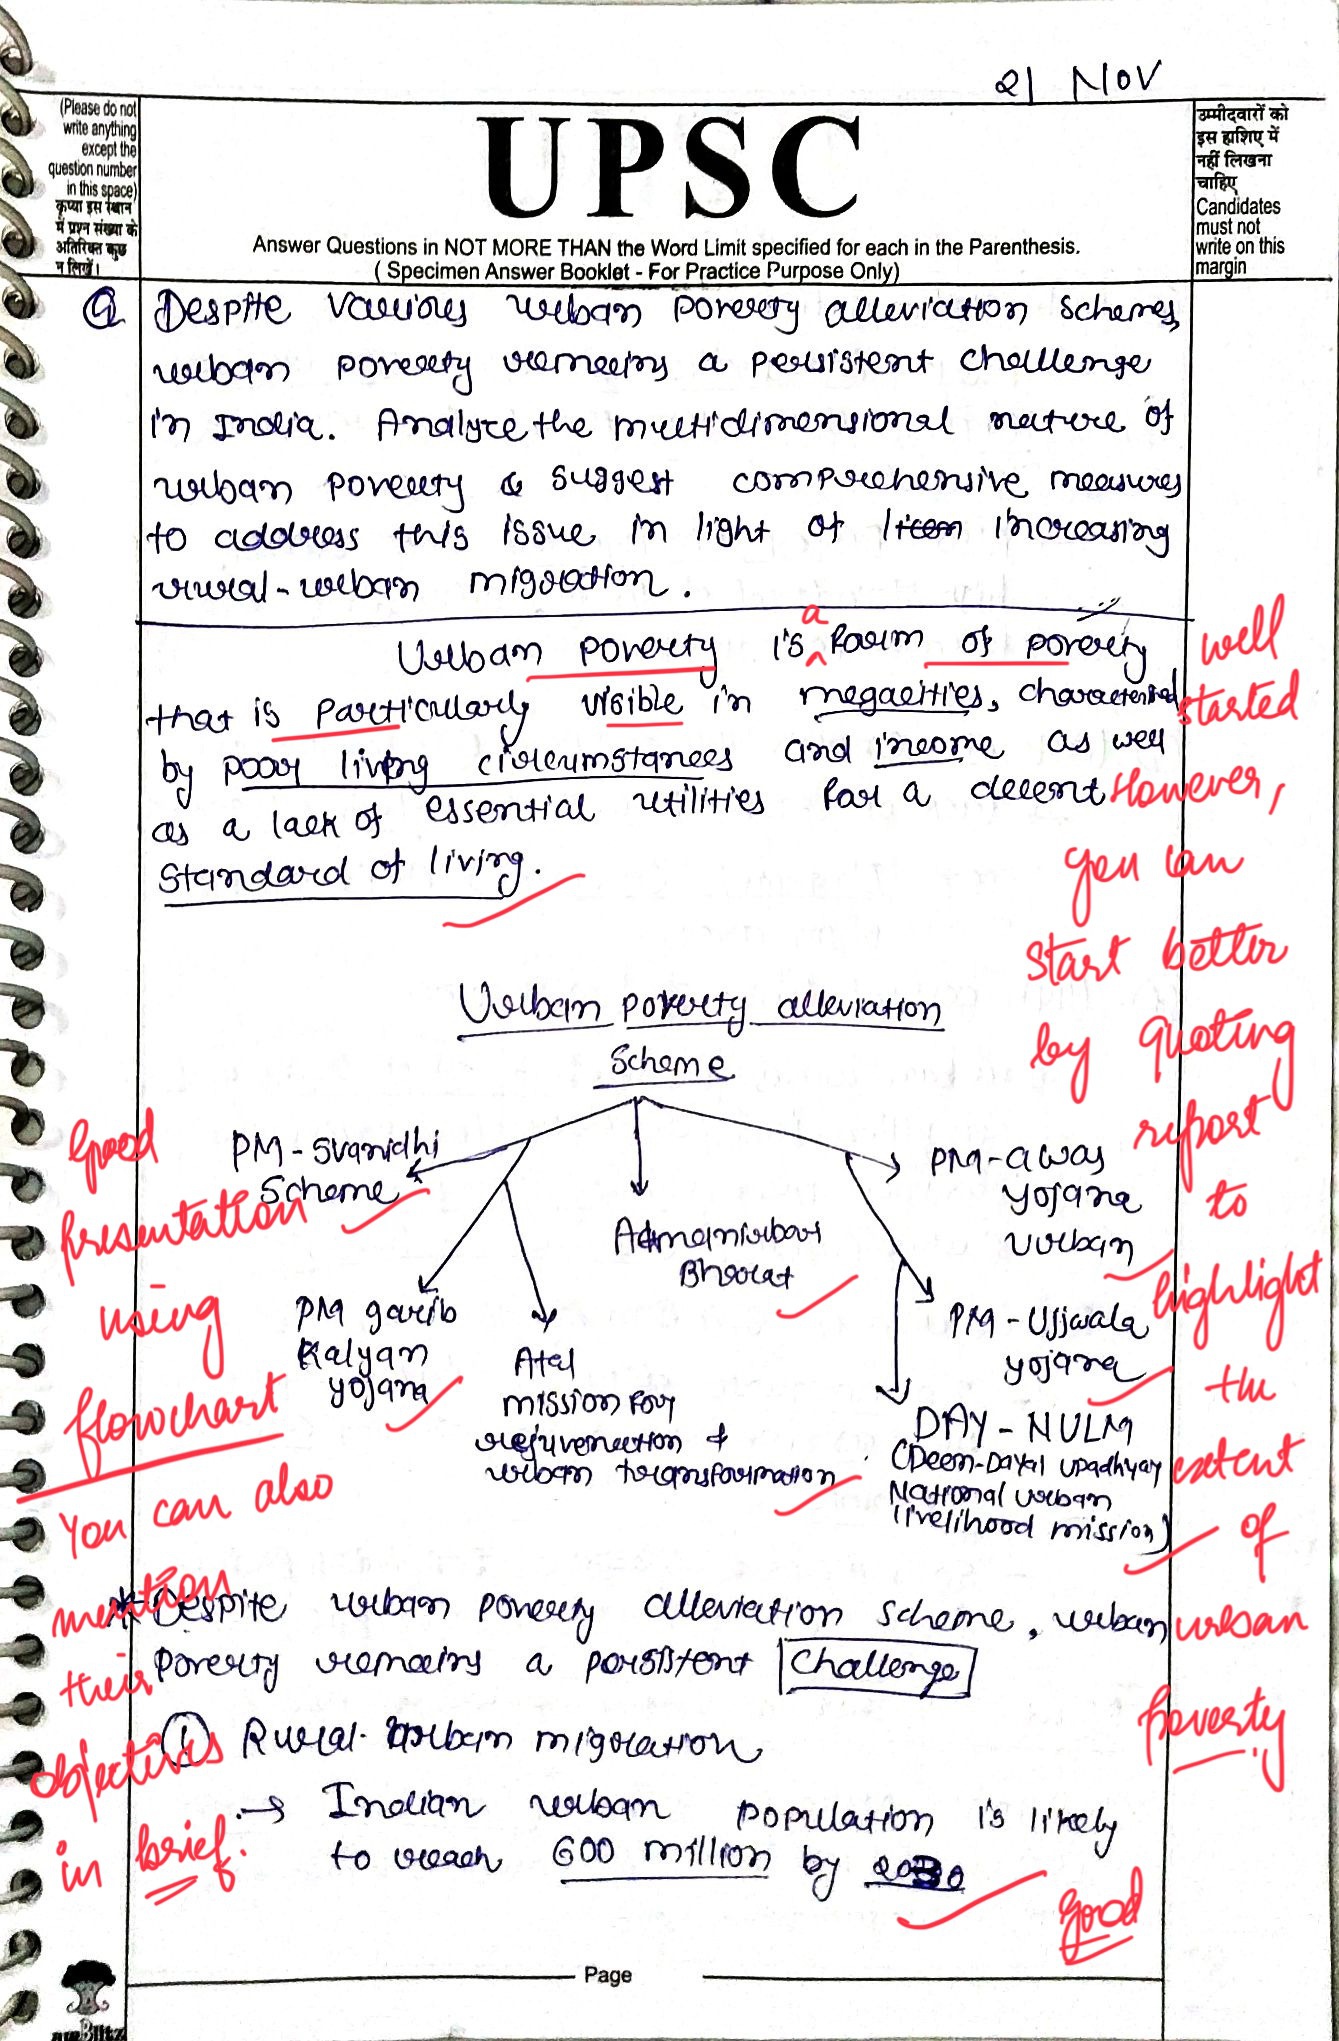 21 Nov
(Please do not
write anything
except the
question number
in this space)
कृप्या इस स्थान
में प्रश्न संख्या के
अतिरिक्त कुछ
न लिखें।
UPSC
Answer Questions in NOT MORE THAN the Word Limit specified for each in the Parenthesis.
( Specimen Answer Booklet - For Practice Purpose Only)
उम्मीदवारों को
इस हाशिए में
नहीं लिखना
चाहिए
Candidates
must not
write on this
margin
Q Despite various urban poverty alleviation schemes,
urban poverty remains a persistent challenge
in India. Analyze the multidimensional nature of
urban poverty & suggest comprehensive measures
to address this issue in light of increasing
rural-urban migration.
Urban poverty is a form of poverty
that is particularly visible in megacities, characterised
by poor living circumstances and income as well
as a lack of essential utilities for a decent
standard of living.
well
started
However,
you can
start better
by quoting
report
to
highlight
the
extent
of
urban
poverty
Urban poverty alleviation
Scheme
PM-Svanidhi
Scheme
PM garib
Kalyan
yojana
Atal
mission for
rejuvenation &
urban transformation
Atmanirbhar
Bharat
PM-awas
yojana
urban
PM-Ujjwala
yojana
DAY-NULM
(Deen-Dayal Upadhyay
National urban
livelihood mission)
Good
presentation
using
flowchart
You can also
mention
their
objectives
in brief.
* Despite urban poverty alleviation scheme, urban
poverty remains a persistent challenge
① Rural-urban migration
→ Indian urban population is likely
to reach 600 million by 2030
Good
Page